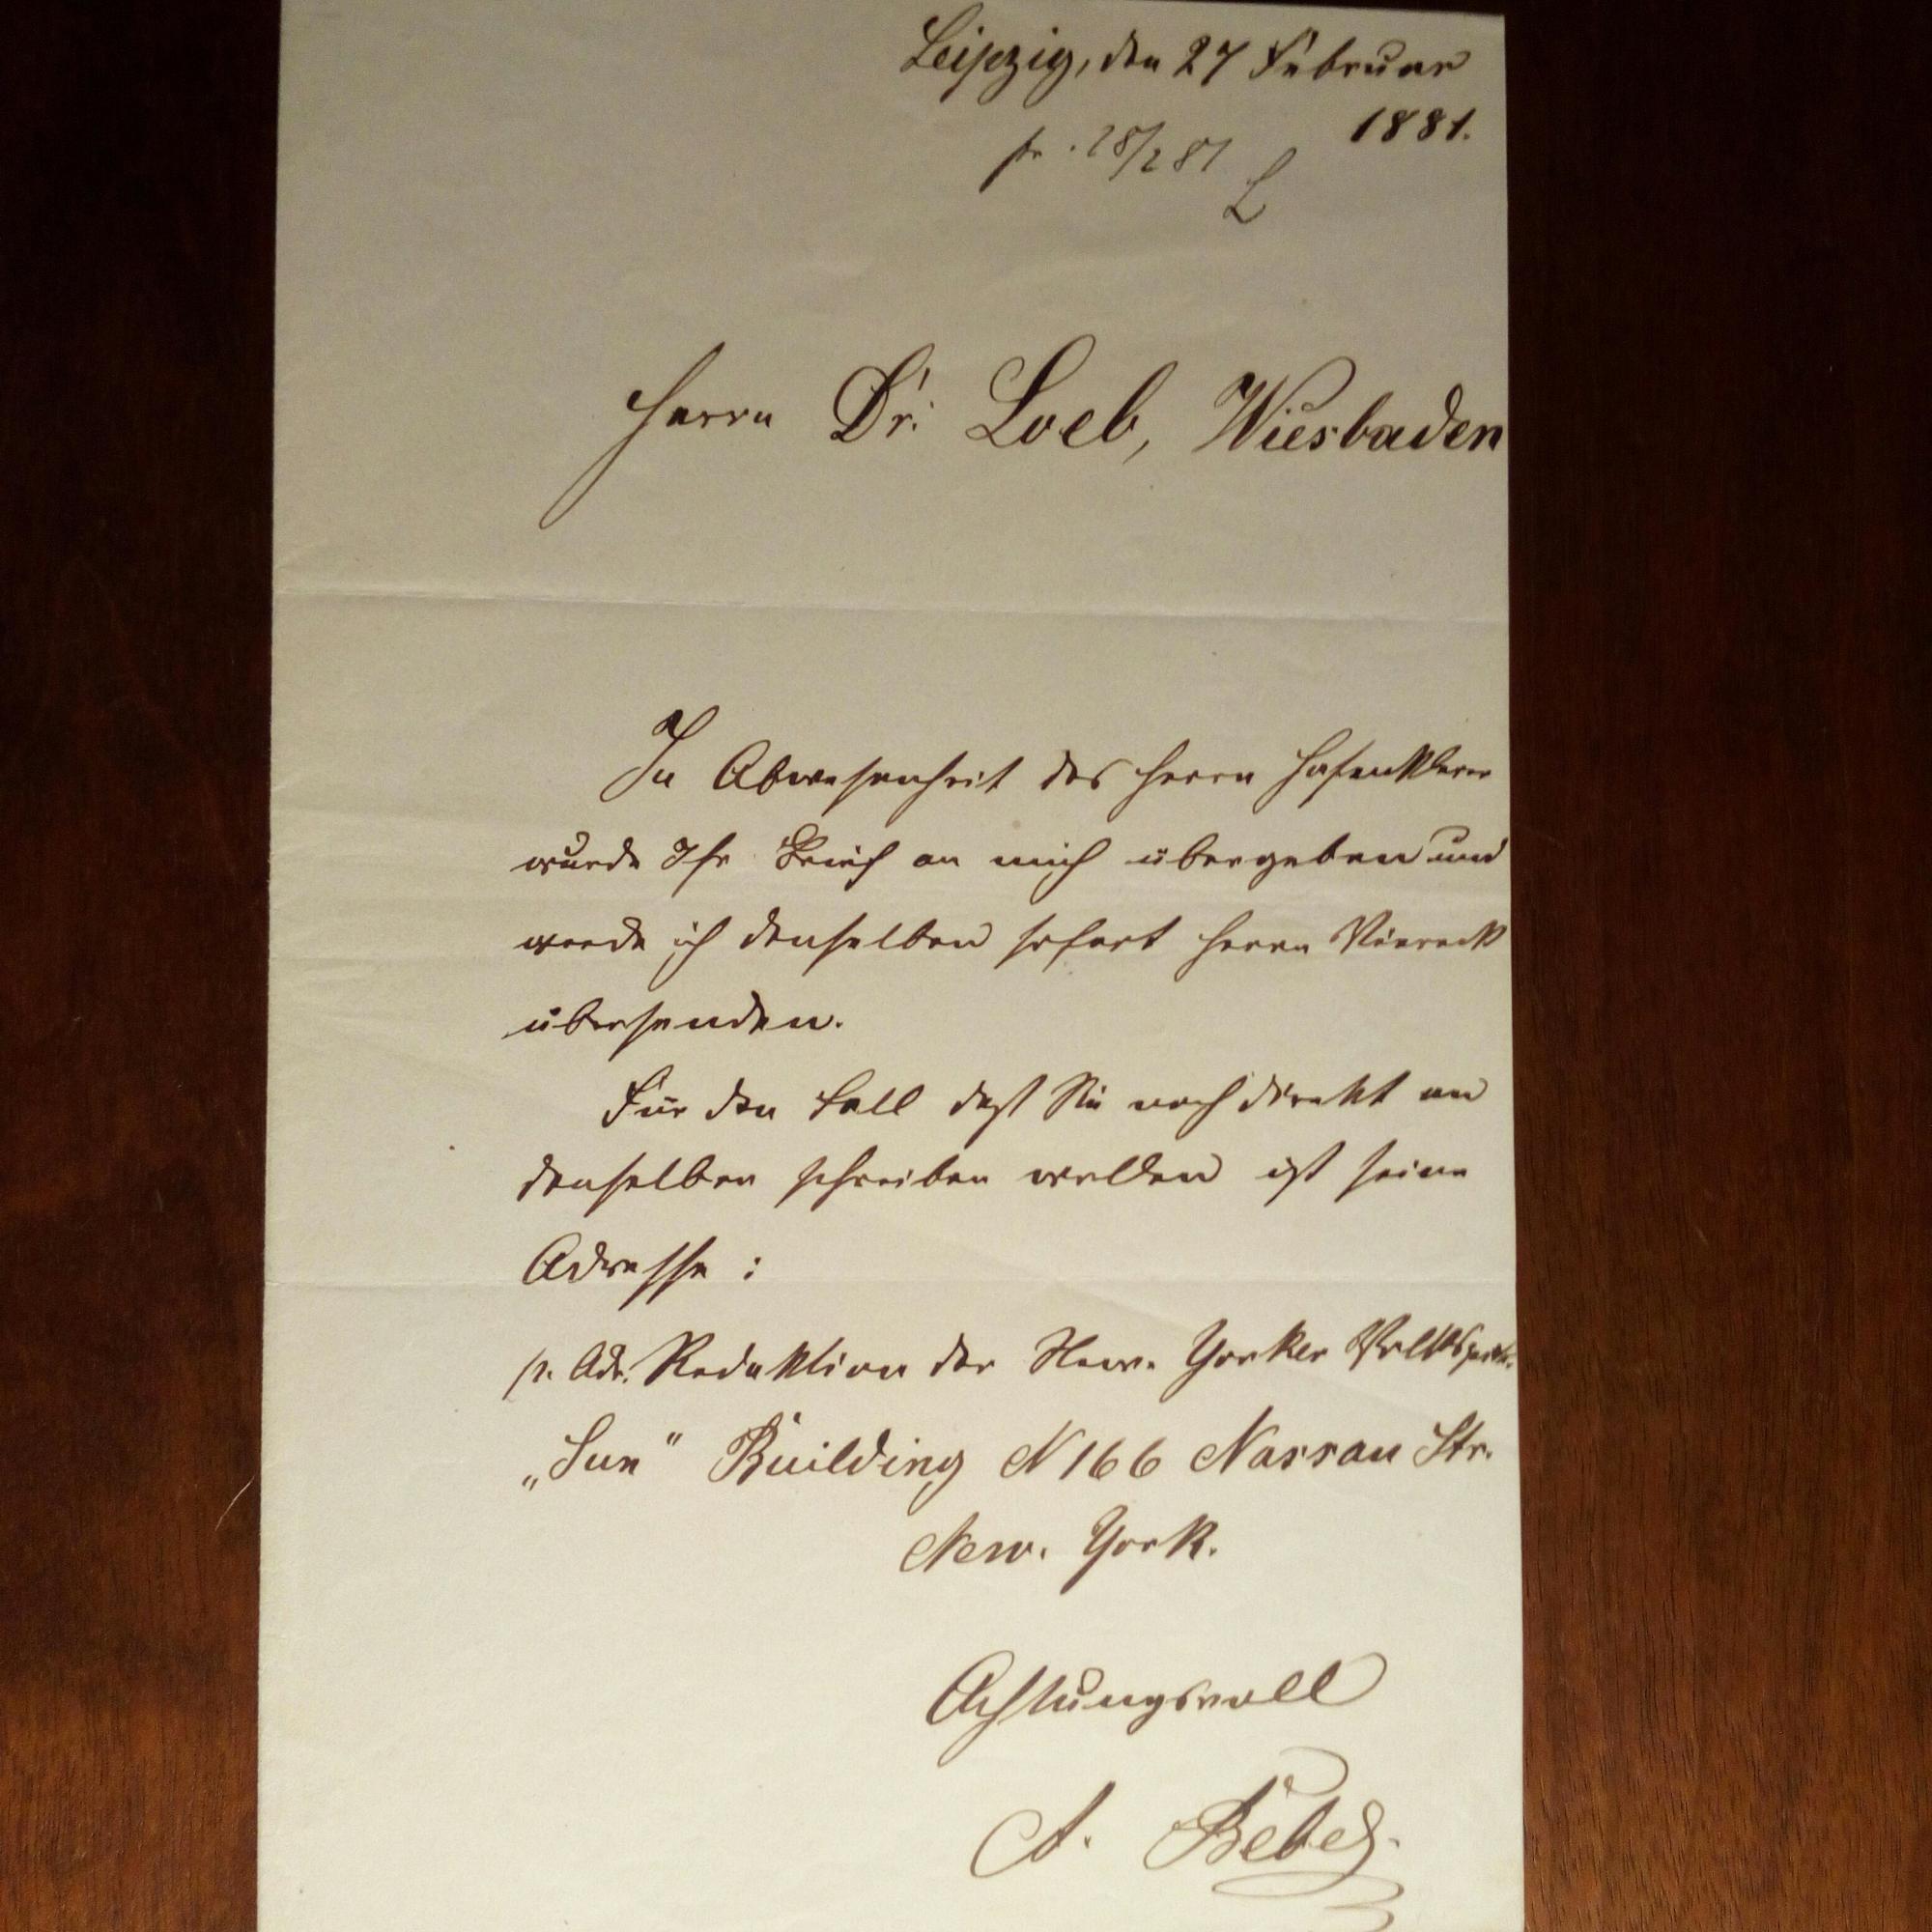 Leipzig, den 27 Februar
1881.
pr. 28/2 81
L
Herrn Dr. Loeb, Wiesbaden
In Abwesenheit des Herrn Hasenklever
wurde Ihr Brief an mich übergeben und
werde ich denselben sofort Herrn Viereck
übersenden.
Für den Fall daß Sie noch direkt an
denselben schreiben wollen ist seine
Adresse :
p. Adr. Redaktion der New. Yorker Volksztg.
„Sun“ Building N 166 Nassau Str.
New. York.
Achtungsvoll
A. Bebel.